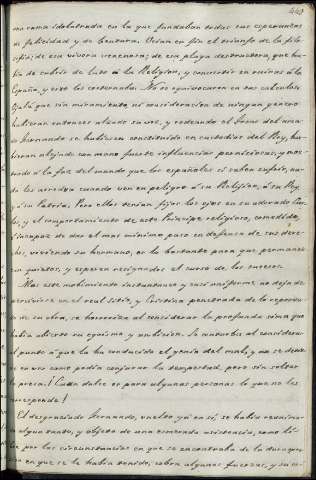 449
ma rama idolatrada en la que fundaban todas sus esperanzas
de felicidad y de ventura. Veian en fin el triunfo de la filo-
sofía; de esa vivora venenosa; de esa plaga destructora, que ha-
bia de cubrir de luto á la Religion, y convertir en ruinas á la
España, y todo los consternaba. No se equivocaron en sus calculos.
Ojalá que sin miramiento ni consideracion de ningun género
hubieran entonces alzado su voz, y rodeando el trono del ama-
do Fernando se hubiesen constituido en custodios del Rey, hu-
bieran alejado con mano fuerte influencias perniciosas, y mos-
trado á la faz del mundo que los españoles si saben sufrir, na-
da les arredra cuando ven en peligro á su Religion, á su Rey,
y á su Patria. Pero ellos tenian fijos los ojos en su adorado Car-
los, y el comportamiento de este Principe religioso, comedido,
é incapaz de dar el mas minimo paso en defensa de sus dere-
chos, viviendo su hermano, es lo bastante para que permanez-
can quietos, y esperen resignados el curso de los sucesos.
Mas este movimiento instantaneo y casi uniforme no deja de
percibirse en el real sitio, y Cristina penetrada de lo
de su obra, se horroriza al considerar la profunda sima que
habia abierto su egoismo y ambicion. Se aturde al considerar
el punto á que la ha conducido el genio del mal, y no se detie-
ne en ver como podia conjurar la tempestad, pero sin soltar
la presa. ¡Cuan dulce es para algunas personas lo que no les
corresponde!
El desgraciado Fernando, vuelto ya en sí, se habia reanima-
do algun tanto, y objeto de una esmerada asistencia, como lo
por las circunstancias en que se encontraba de la
en que se le habia tenido, cobra algunas fuerzas, y su